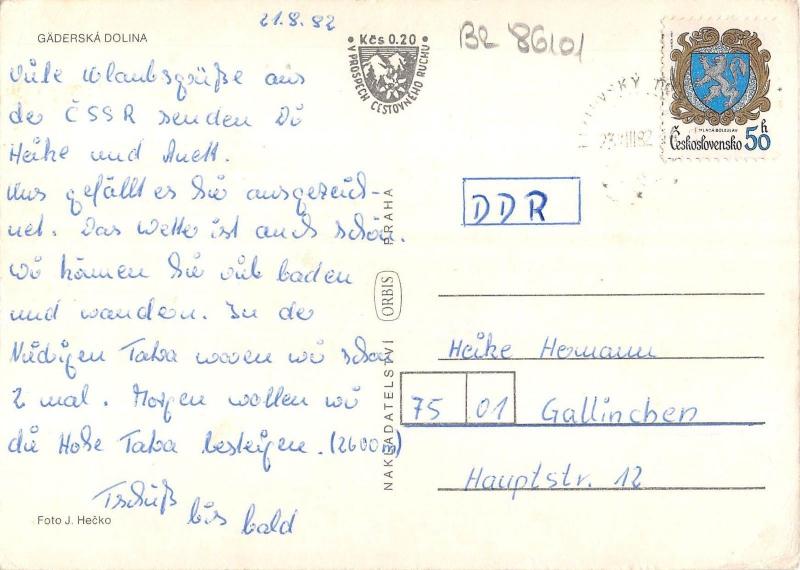 21.8.82
GÄDERSKÁ DOLINA
Viele Urlaubsgrüße aus
der ČSSR senden Dir
Heike und Anett.
Uns gefällt es hier ausgezeich-
net. Das Wetter ist auch schön.
Wir können hier viel baden
und wandern. In der
Niedrigen Tatra waren wir schon
2 mal. Morgen wollen wir
die Hohe Tatra besteigen. (2600m)
Tschüß
bis bald
Foto J. Hečko
NAKLADATELSTVÍ ORBIS PRAHA
Kčs 0.20
V PROSPĚCH CESTOVNÉHO RUCHU
BL 86101
MLADÁ BOLESLAV
Československo 50 h
DDR
Heike Hermann
75 01 Gallinchen
Hauptstr. 12